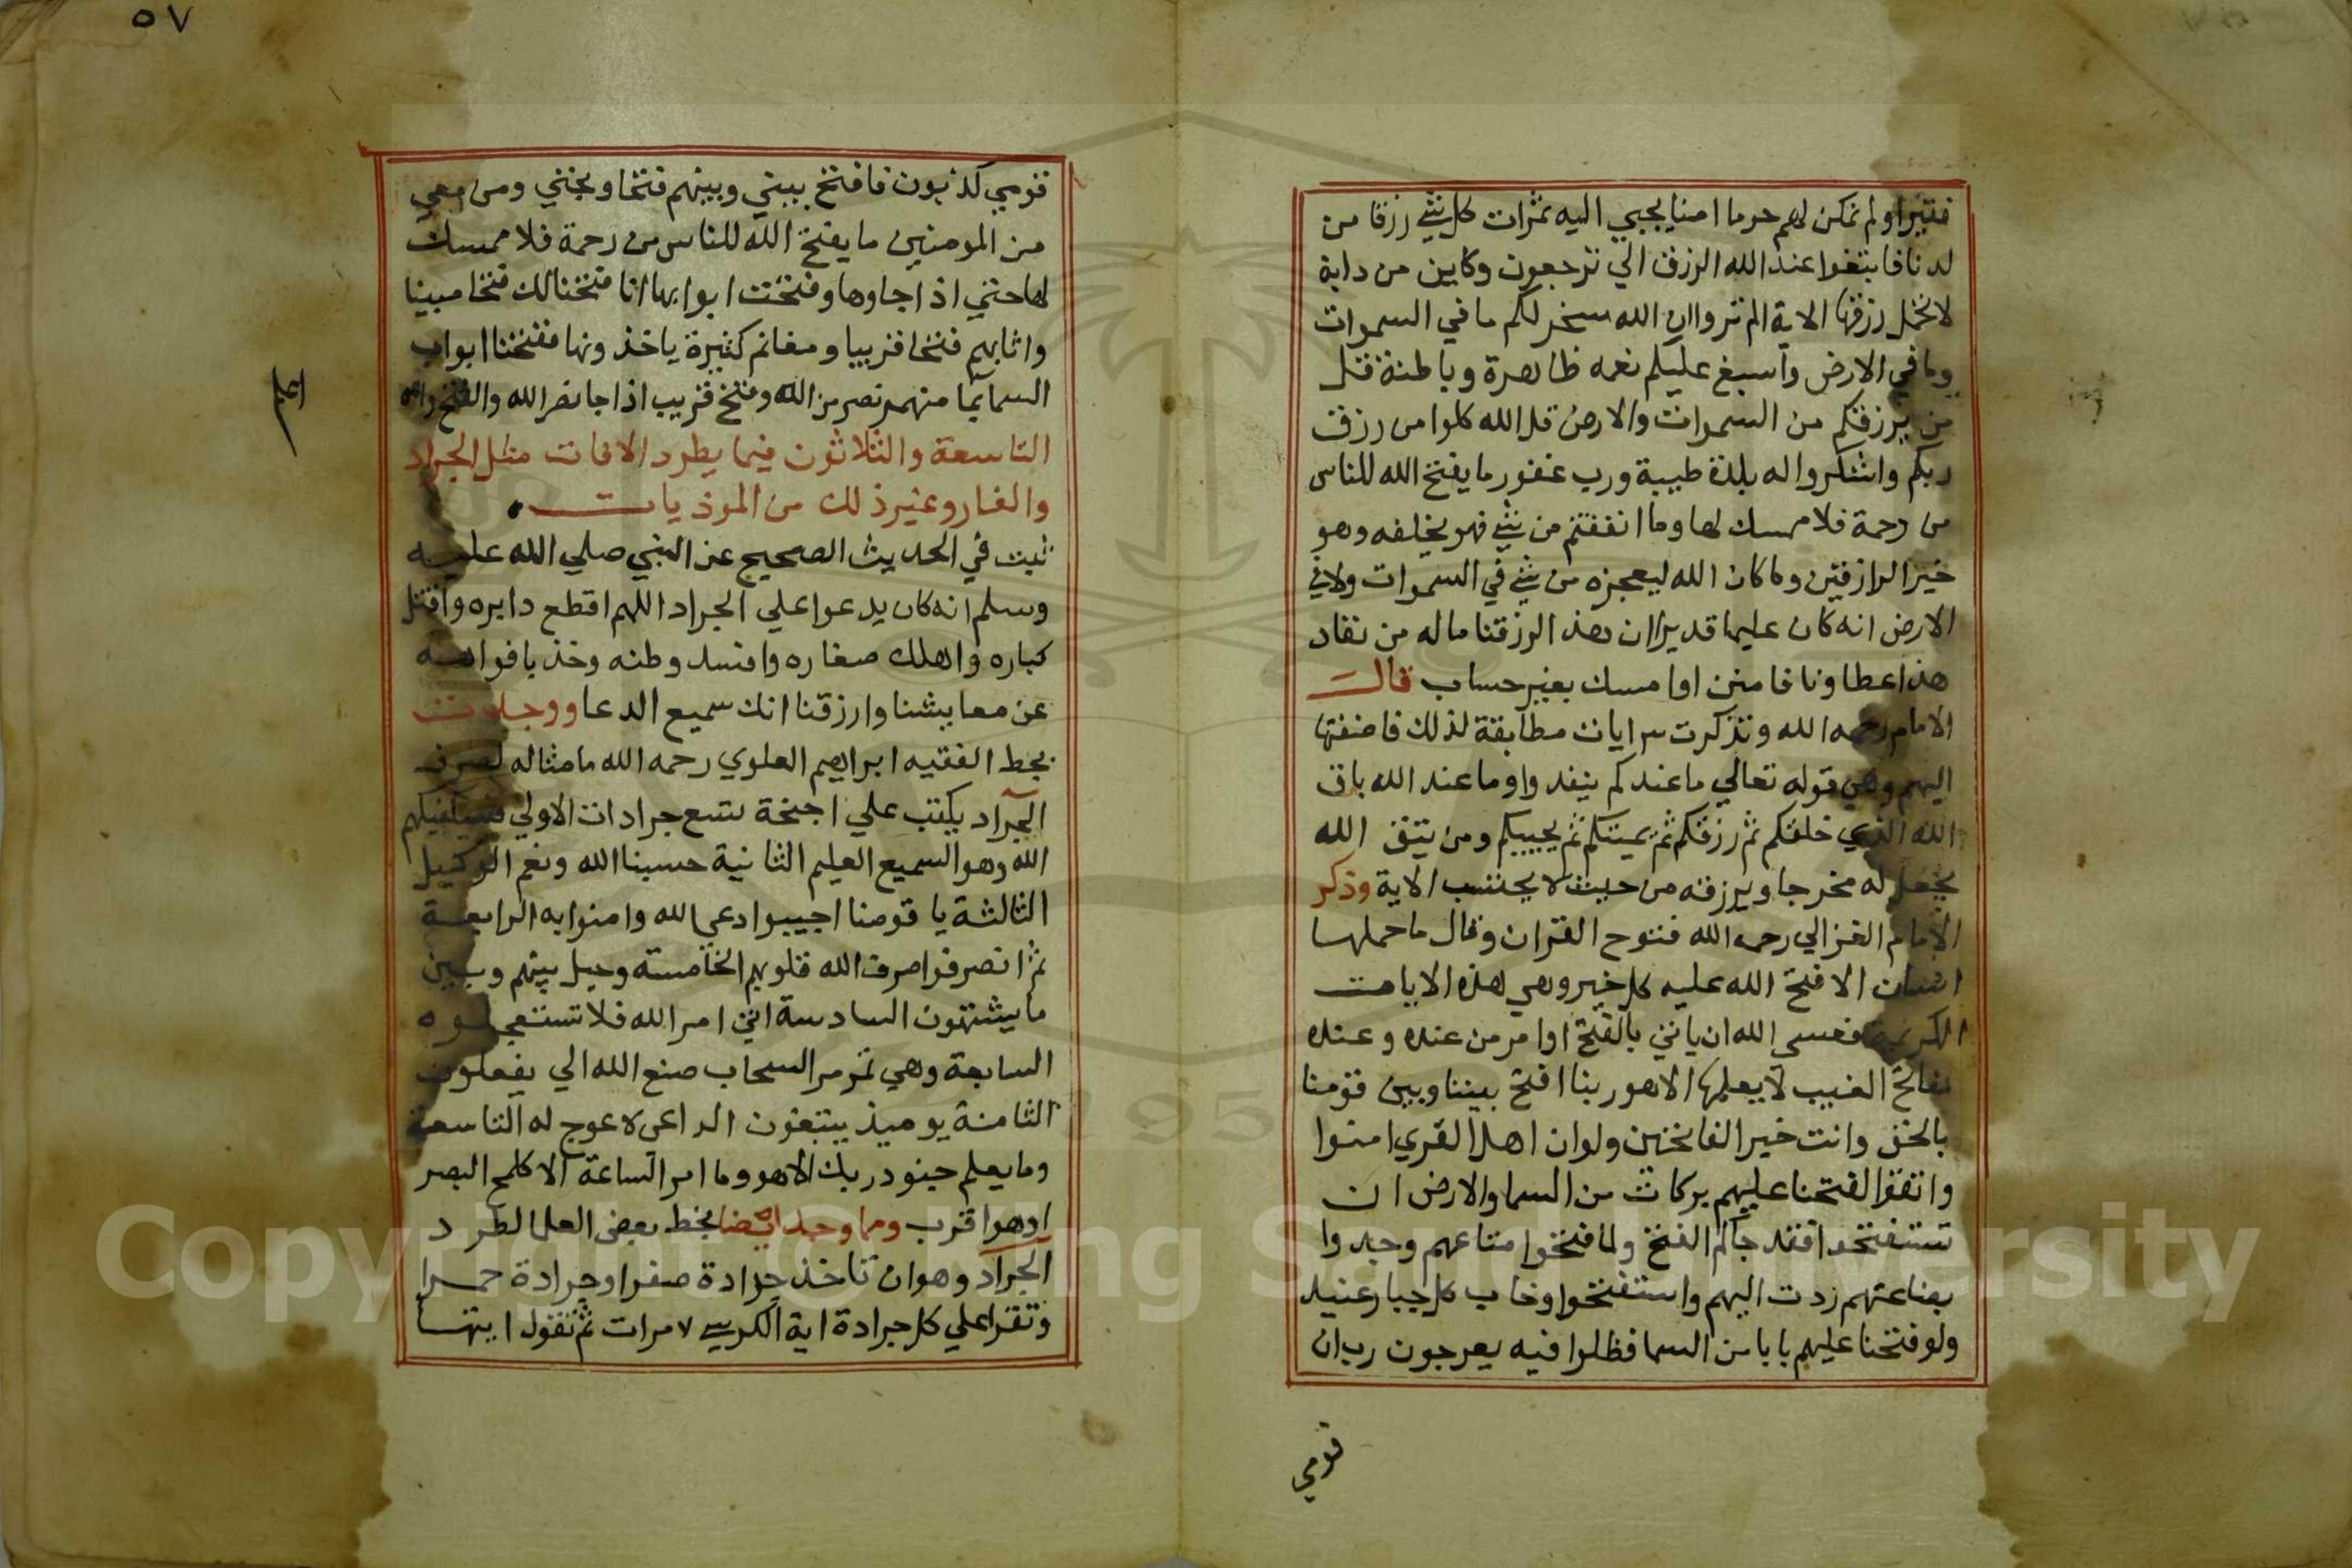 فقيرا ولم نمكن لهم حرما امنا يجبي اليه ثمرات كل شي رزقا من
لدنا فابتغوا عند الله الرزق الي ترجعون وكاين من دابة
لا تحمل رزقها الاية الم تروا ان الله سخر لكم ما في السموات
وما في الارض واسبغ عليكم نعمه ظاهرة وباطنة قل
من يرزقكم من السموات والارض قل الله كلوا من رزق
ربكم واشكروا له بلدة طيبة ورب غفور ما يفتح الله للناس
من رحمة فلا ممسك لها وما انفقتم من شي فهو يخلفه وهو
خير الرازقين وما كان الله ليعجزه من شي في السموات ولا في
الارض انه كان عليما قديرا ان هذا لرزقنا ماله من نفاد
هذا عطاونا فامنن او امسك بغير حساب قال
الامام رحمه الله وتذكرت ايات مطابقة لذلك فاضفتها
اليهم وهي قوله تعالي ما عندكم ينفد وا وما عند الله باق
الله الذي خلقكم ثم رزقكم ثم يميتكم ثم يحييكم ومن يتق الله
يجعل له مخرجا ويرزقه من حيث لا يحتسب الاية وذكر
الامام الغزالي رحمه الله فتوح القران وقال ما حملها
انسان الا فتح الله عليه كل خير وهي هذه الايات
الكريمة فعسي الله ان ياتي بالفتح او امر من عنده وعنده
مفاتح الغيب لا يعلمها الا هو ربنا افتح بيننا وبين قومنا
بالحق وانت خير الفاتحين ولو ان اهل القري امنوا
واتقوا لفتحنا عليهم بركات من السما والارض ان
تستفتحوا فقد جاكم الفتح ولما فتحوا متاعهم وجدوا
بضاعتهم ردت اليهم واستفتحوا وخاب كل جبار عنيد
ولو فتحنا عليهم بابا من السما فظلوا فيه يعرجون رب ان
قومي
٥٧
قومي كذبون فافتح بيني وبينهم فتحا ونجني ومن معي
من المومنين ما يفتح الله للناس من رحمة فلا ممسك
لها حتي اذا جاوها وفتحت ابوابها انا فتحنا لك فتحا مبينا
واثابهم فتحا قريبا ومغانم كثيرة ياخذونها ففتحنا ابواب
السما بما منهمر نصر من الله وفتح قريب اذا جا نصر الله والفتح
التاسعة والثلاثون فيما يطرد الافات مثل الجراد
والفار وغير ذلك من الموذيات
ثبت في الحديث الصحيح عن النبي صلي الله عليه
وسلم انه كان يدعوا علي الجراد اللهم اقطع دابره واقتل
كباره واهلك صغاره وافسد وطنه وخذ بافواهه
عن معايشنا وارزقنا انك سميع الدعا ووجدت
بخط الفقيه ابراهيم العلوي رحمه الله ما مثاله لصرف
الجراد يكتب علي اجنحة تسع جرادات الاولي فسيكفيكهم
الله وهو السميع العليم الثانية حسبنا الله ونعم الوكيل
الثالثة يا قومنا اجيبوا دعي الله وامنوا به الرابعة
ثم انصرفوا صرف الله قلوبهم الخامسة وحيل بينهم وبين
ما يشتهون السادسة اتي امر الله فلا تستعجلوه
السابعة وهي تمر مر السحاب صنع الله الي يفعلون
الثامنة يوميذ يتبعون الداعي لا عوج له التاسعة
وما يعلم جنود ربك الا هو وما امر الساعة الا كلمح البصر
او هو اقرب ومما وجد ايضا بخط بعض العلما لطرد
الجراد وهو ان تاخذ جرادة صفرا وجرادة حمرا
وتقرا علي كل جرادة اية الكرسي ٧ مرات ثم تقول ايتها
Copyright © King Saud University